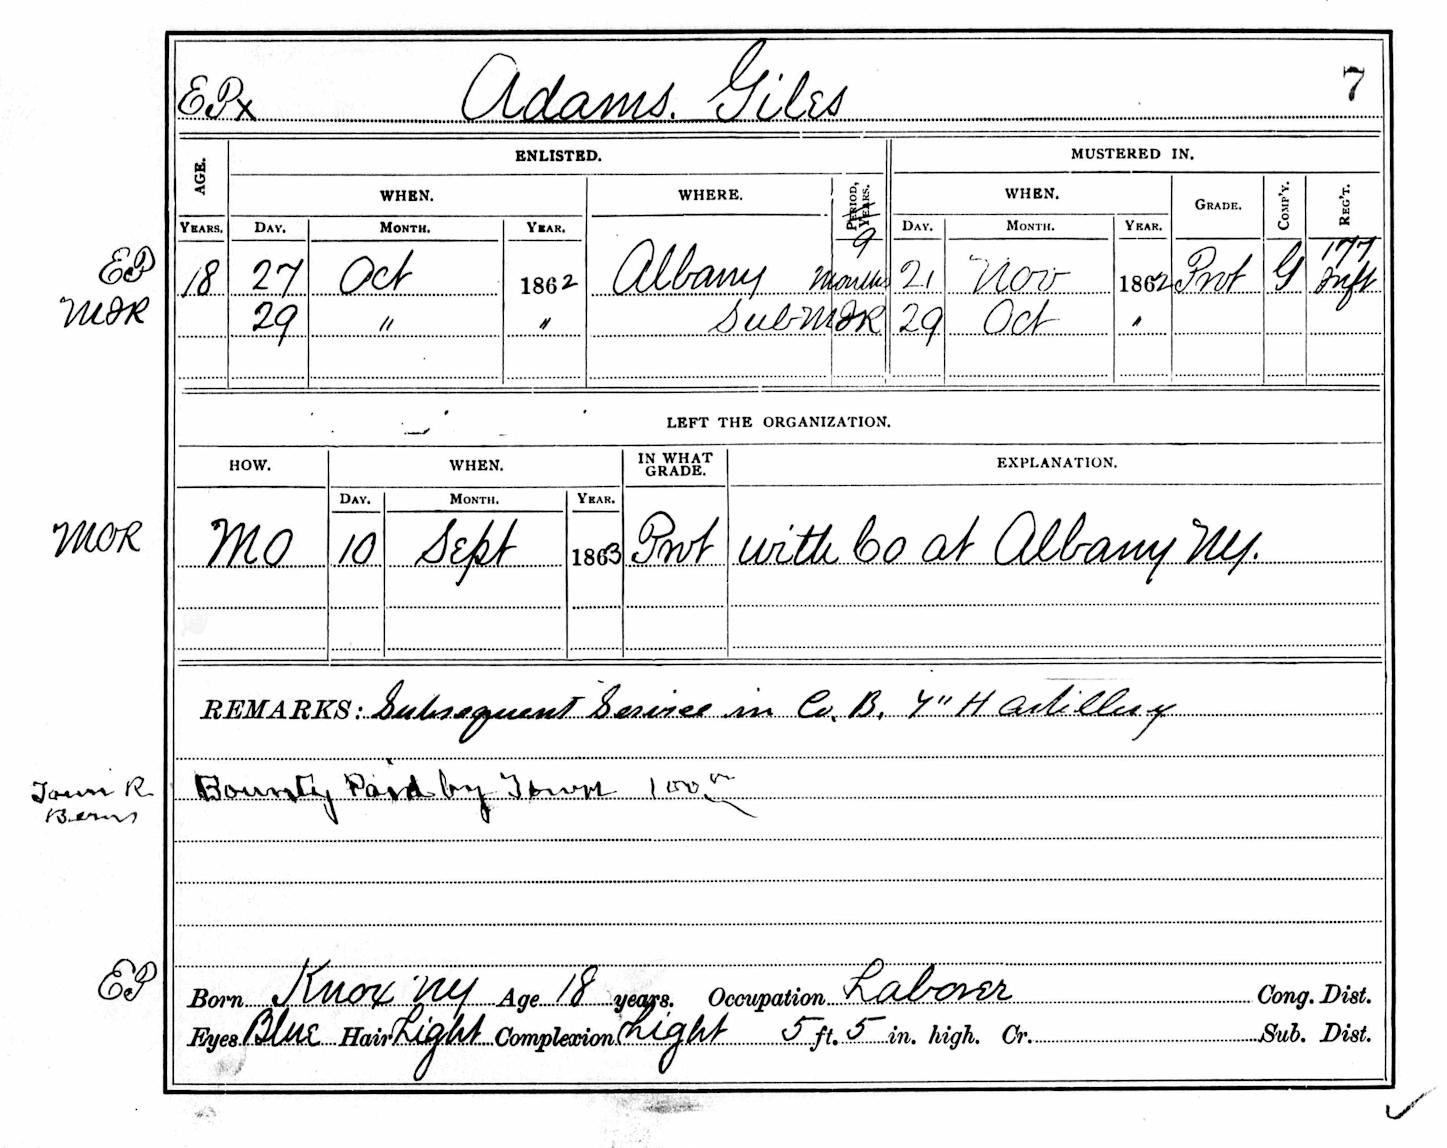 EPx Adams. Giles 7
AGE. ENLISTED. MUSTERED IN.
WHEN. WHERE. PERIOD, YEARS. WHEN. GRADE. COMP'Y. REG'T.
YEARS. DAY. MONTH. YEAR. DAY. MONTH. YEAR.
9 177
EP 18 27 Oct 1862 Albany Months 21 Nov 1862 Pvt G Inft
MIR 29 " " Sub MIR 29 Oct "
LEFT THE ORGANIZATION.
HOW. WHEN. IN WHAT GRADE. EXPLANATION.
DAY. MONTH. YEAR.
MOR MO 10 Sept 1863 Pvt with Co at Albany NY.
REMARKS: Subsequent Service in Co. B. 7" H Artillery
Town R. Bounty Paid by Town 100
Berns
EP Born Knox NY Age 18 years. Occupation Laborer Cong. Dist.
Eyes Blue Hair Light Complexion Light 5 ft. 5 in. high. Cr. Sub. Dist.